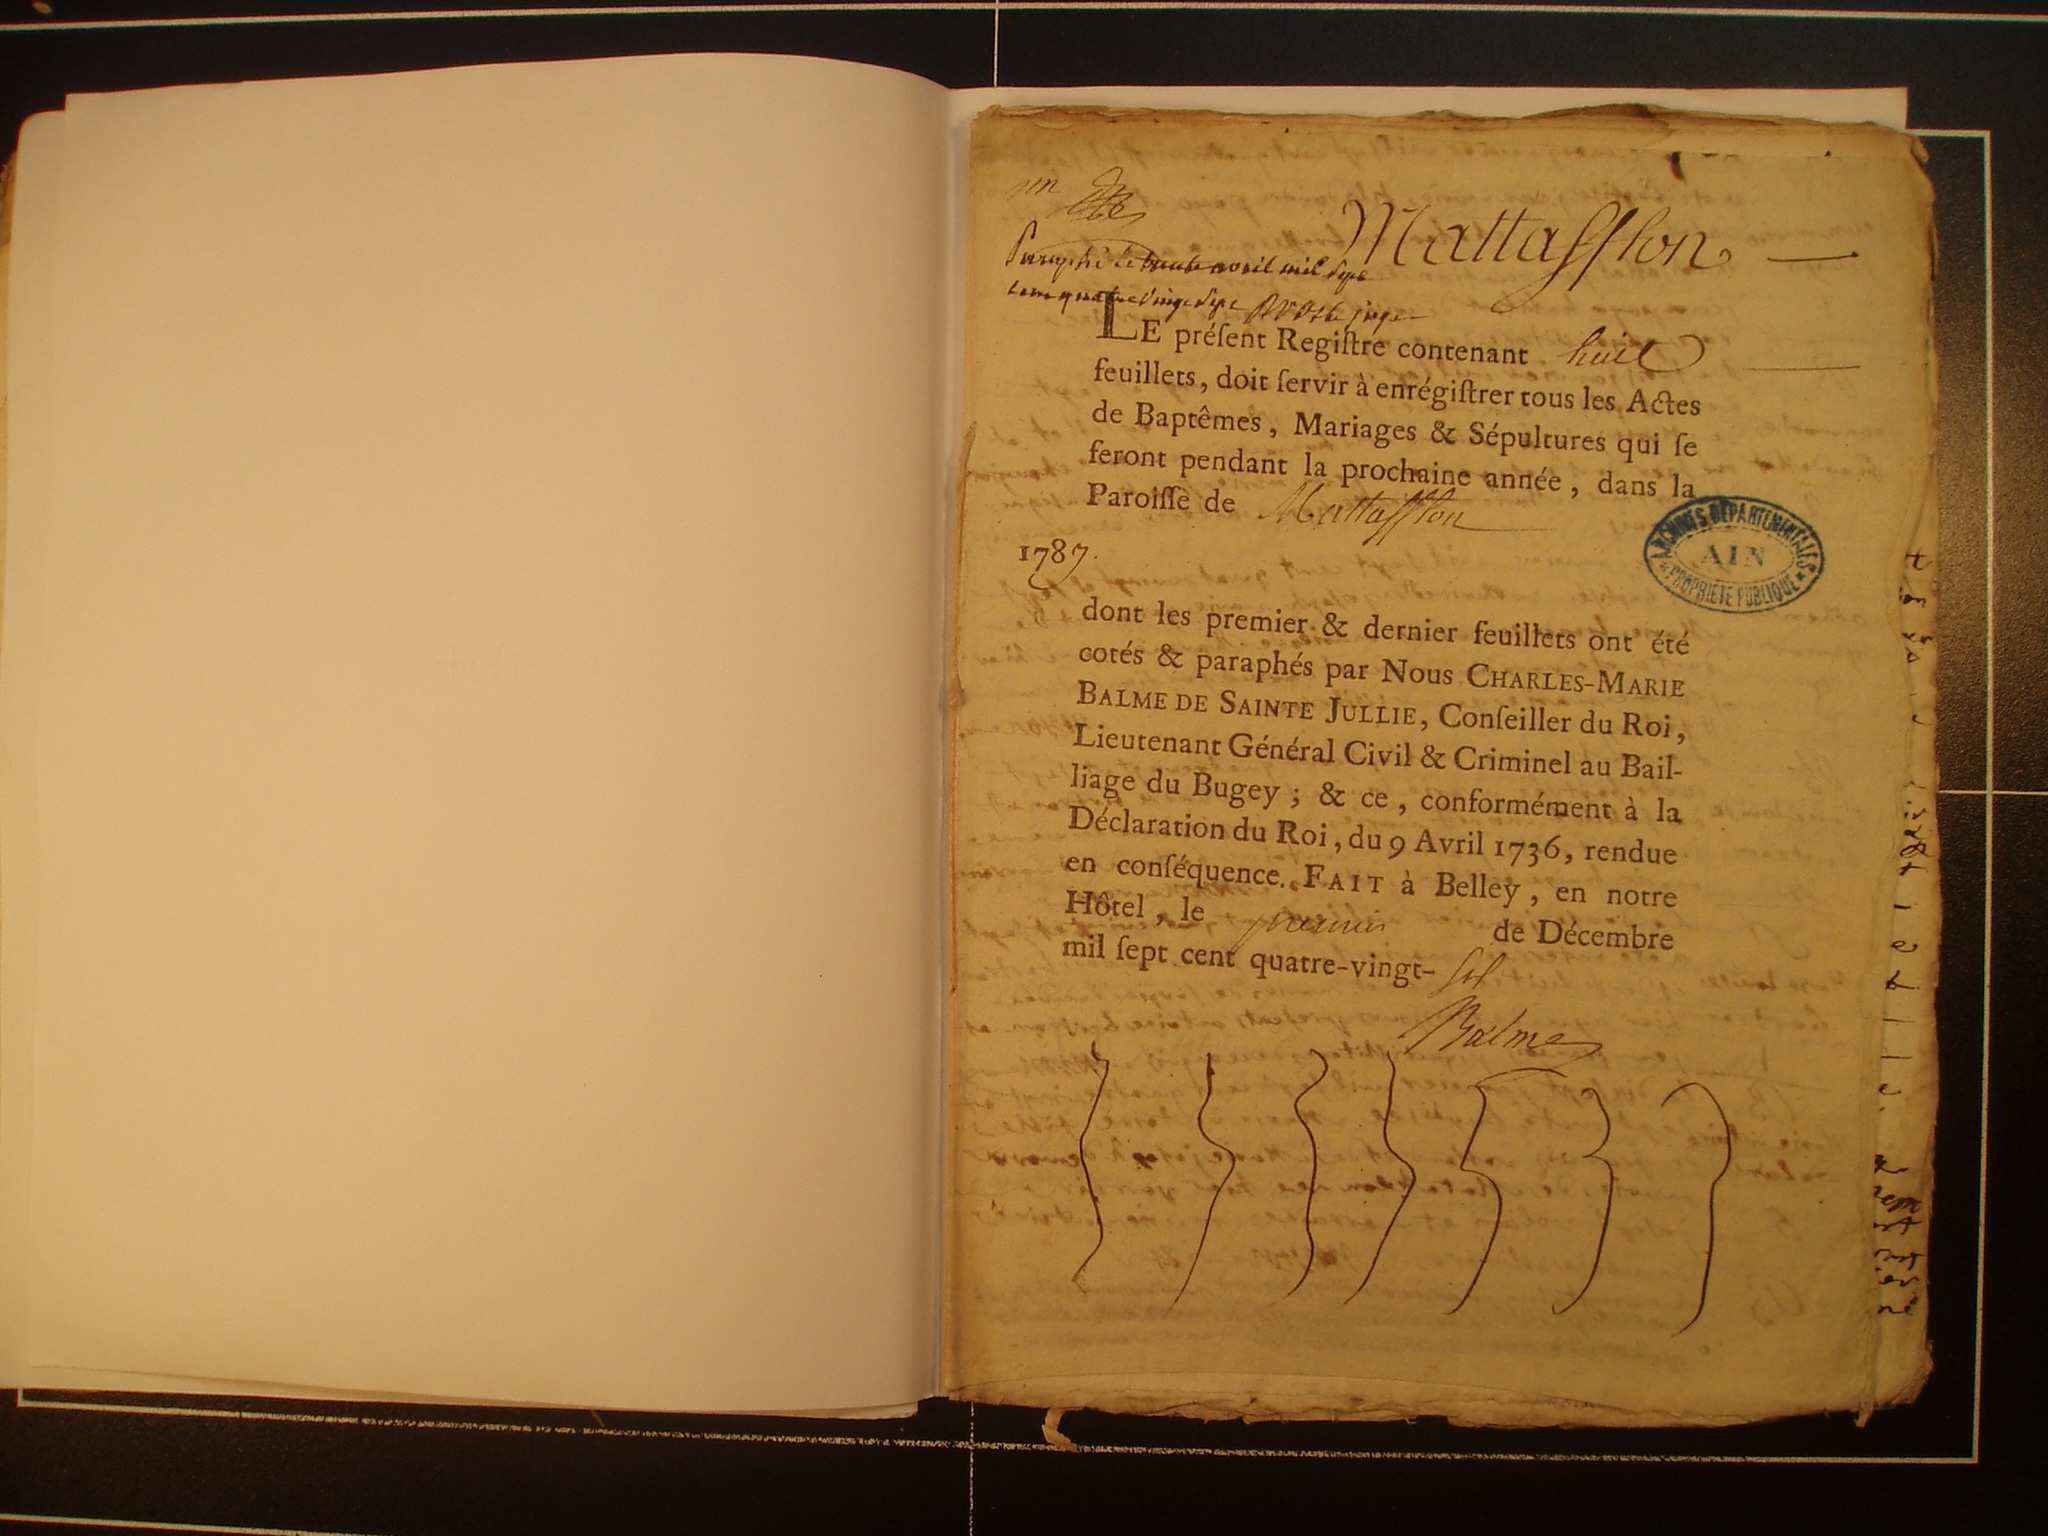 un
Mattafflon
Paraphé le trente avril mil sept
cent quatre vingt sept juge
LE préſent Regiſtre contenant huit
feuillets, doit ſervir à enrégiſtrer tous les Actes
de Baptêmes, Mariages & Sépultures qui ſe
feront pendant la prochaine année, dans la
Paroiſſe de Mattafflon
1787.
ARCHIVES DÉPARTEMENTALES
AIN
PROPRIÉTÉ PUBLIQUE
dont les premier & dernier feuillets ont été
cotés & paraphés par Nous CHARLES-MARIE
BALME DE SAINTE JULLIE, Conſeiller du Roi,
Lieutenant Général Civil & Criminel au Bail-
liage du Bugey ; & ce, conformément à la
Déclaration du Roi, du 9 Avril 1736, rendue
en conſéquence. FAIT à Belley, en notre
Hôtel, le premier de Décembre
mil ſept cent quatre-vingt- six
Balme